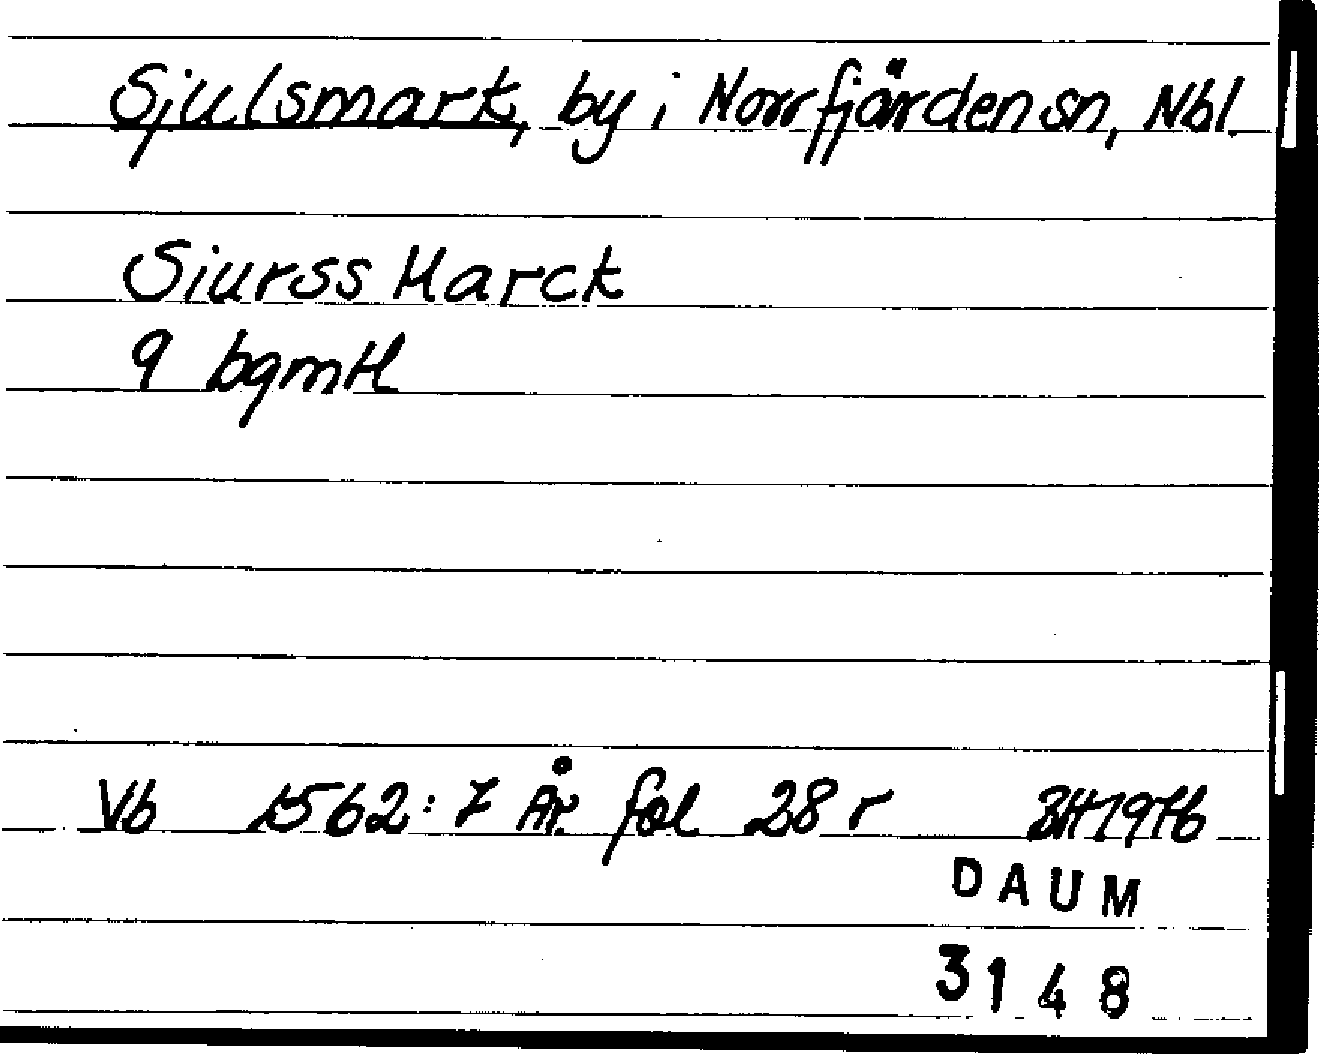 Sjulsmark, by i Norrfjärden sn, Nbl.
Siurss Marck
9 bgmtl
Vb 1562:7 År. fol 28 r BH 1976
DAUM
3148